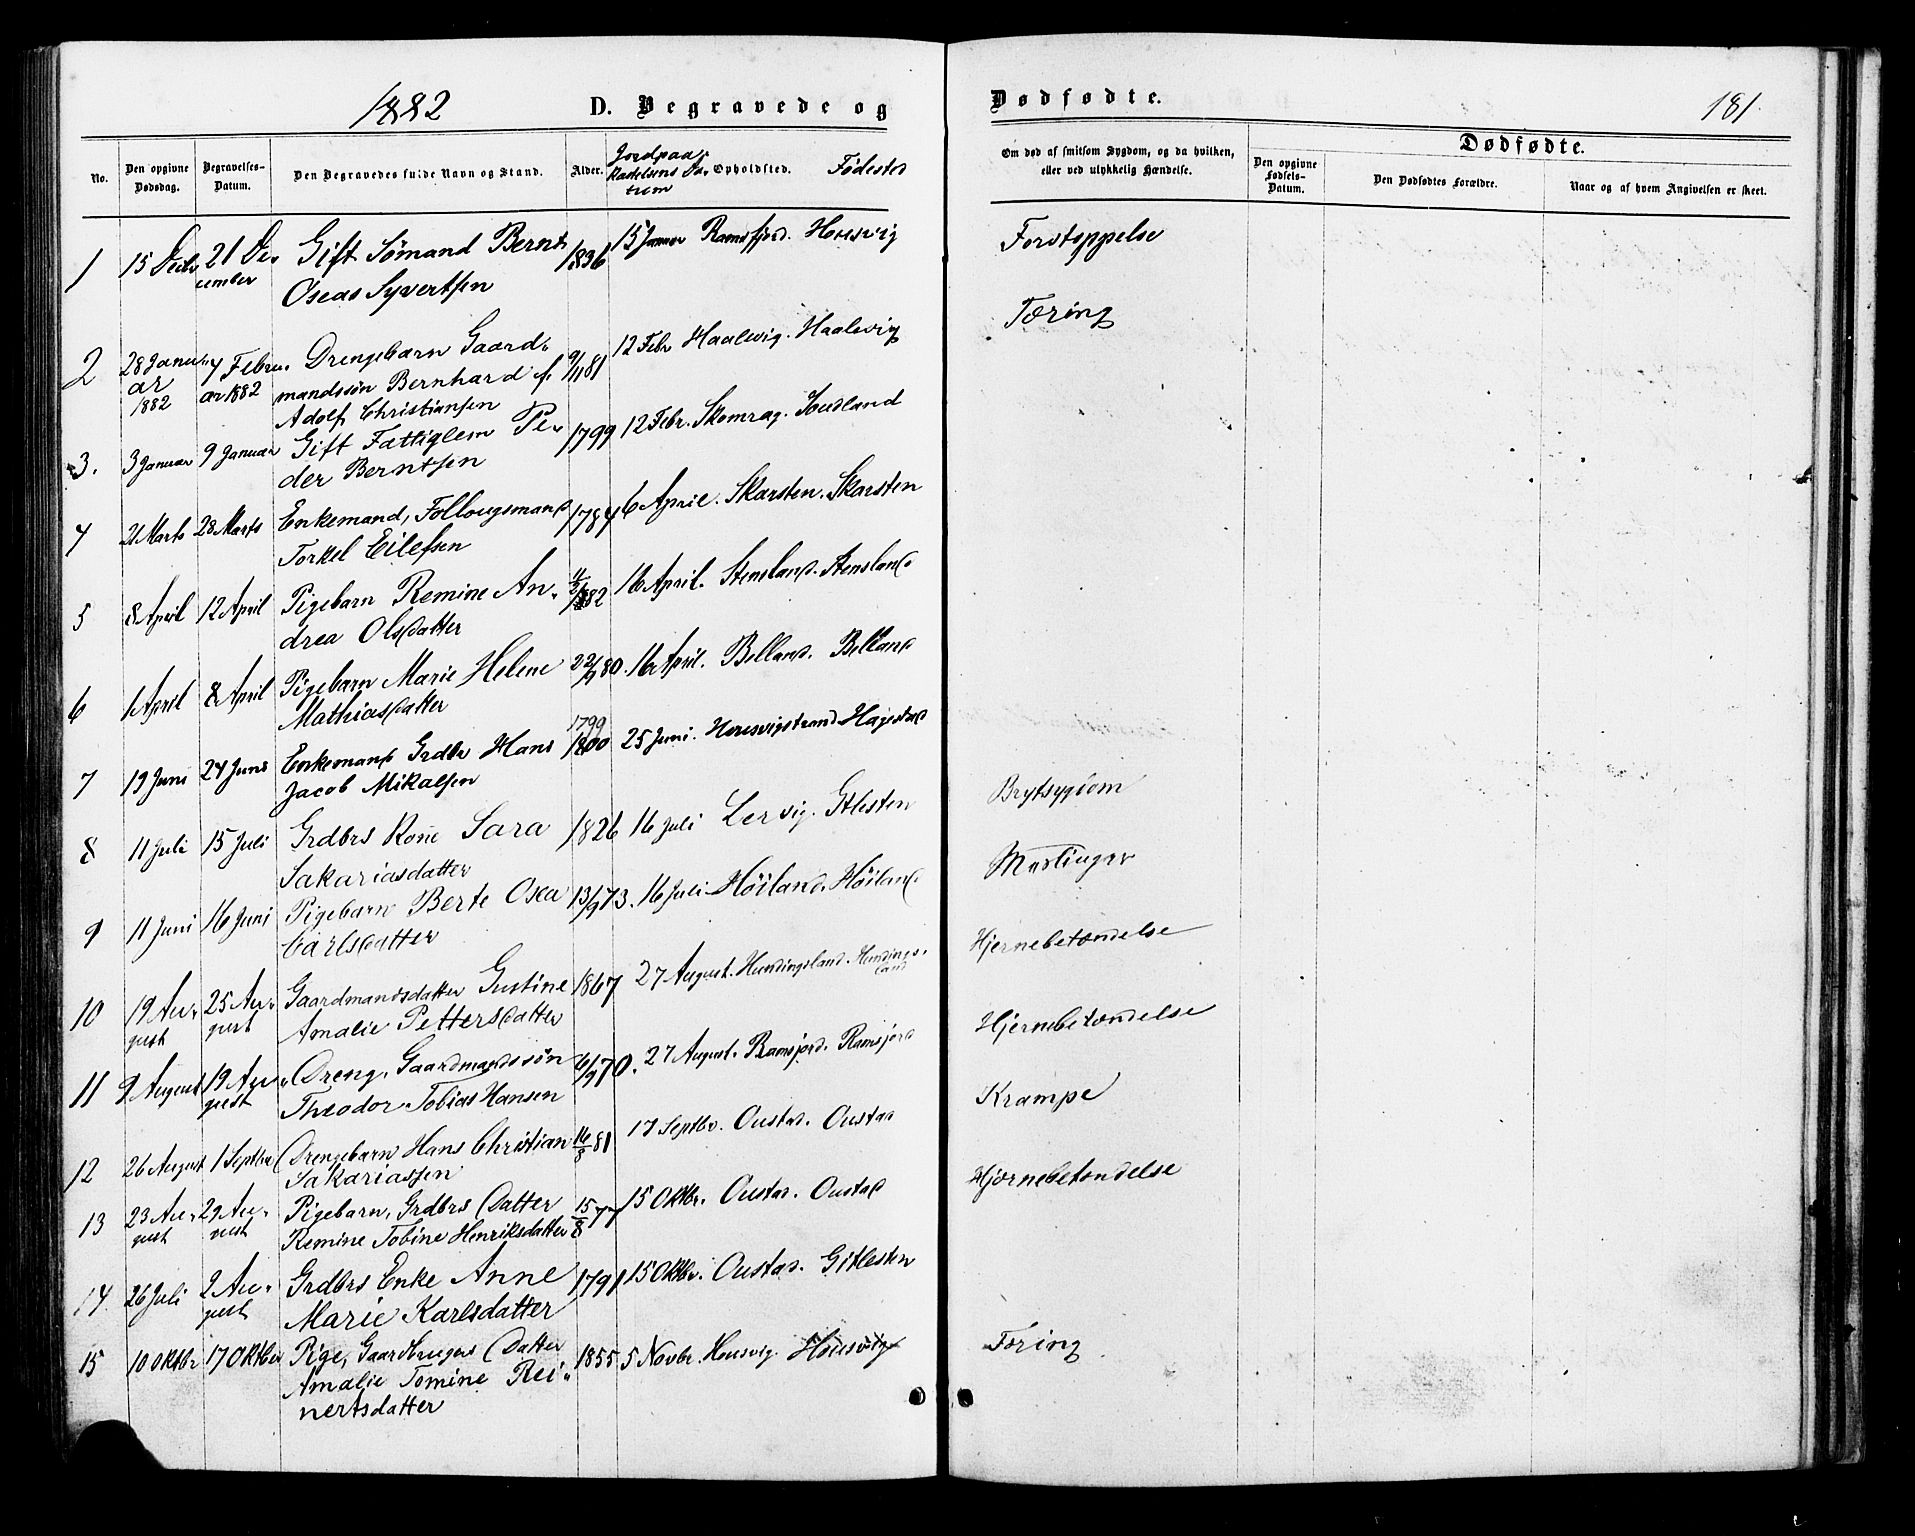 1882 D. Begravede og Dødfødte. 181.
No. Den opgivne Dødsdag. Begravelses-Datum. Den Begravedes fulde Navn og Stand. Alder. Jordpaakastelsens Datum Opholdsted. Fødested Om død af smitsom Sygdom, og da hvilken, eller ved ulykkelig Hændelse. Dødfødte. Den opgivne Fødsels-Datum. Den Dødfødtes Forældre. Naar og af hvem Angivelsen er skeet.
1 15 Decbr 21 De- Gift Sømand Bernt 1836 15 Januar Ramsfjord. Forstoppelse
cember Oseas Syvertsen
2 28 Janu- 7 Febru- Drengebarn Gaard- 9/11 81 12 Febr Haalvig. Haalvig Tæring
ar ar 1882 mandssøn Bernhard
1882 Adolf Christiansen
3. 3 Januar 9 Januar Gift Fattiglem Pe- 1799 12 Febr. Skomrag.
der Berntsen
4 21 Marts 28 Marts Enkemand, Føllougsmand 1784 6 April. Skarsten. Skarsten
Torkel Eilefsen
5 8 April 12 April Pigebarn Remine An- 1882 16 April. Stensland. Stensland
drea Olsdatter
6 1 April 8 April Pigebarn Marie Helene 80. 16 April. Belland. Belland
Mathiasdatter
1799
7 19 Juni 24 Juni Enkemand Grdbr Hans 1800 25 Juni. Hagestad
Jacob Mikalsen
8 11 Juli 15 Juli Grdbrs Kone Sara 1826 16 Juli Lervig. Gitlesten Brystsygdom
Sakariasdatter
9 11 Juni 16 Juni Pigebarn Berte Osea 13/9 73. 16 Juli Höiland. Höiland. Mæslinger
Carlsdatter
10 19 Au- 25 Au- Gaardmandsdatter Gustine 1867 27 August. Hundingsland. Hundings- Hjernebetændelse
gust gust Amalie Pettersdatter land
11 9 August 19 Au- Dreng, Gaardmandssøn 6/9 70. 27 August. Ramsfjord. Ramsfjord Hjernebetændelse
gust Theodor Tobias Hansen
12 26 August 1 Septbr Drengebarn Hans Christian 16/8 81 17 Septbr. Oustad. Oustad Krampe
Sakariassen
13 23 Au- 29 Au- Pigebarn, Grdbrs Datter 15/8 77 15 Oktbr. Oustad. Oustad Hjernebetændelse
gust gust Remine Tobine Henriksdatter
14. 26 Juli 2 Au- Grdbrs Enke Anne 1791 15 Oktbr. Oustad. Gitlesten
gust Marie Karlsdatter
15 10 Oktbr 17 Oktber Pige, Gaardbrugers Datter 1855 5 Novbr. Tæring
Amalie Tomine Rei-
nertsdatter